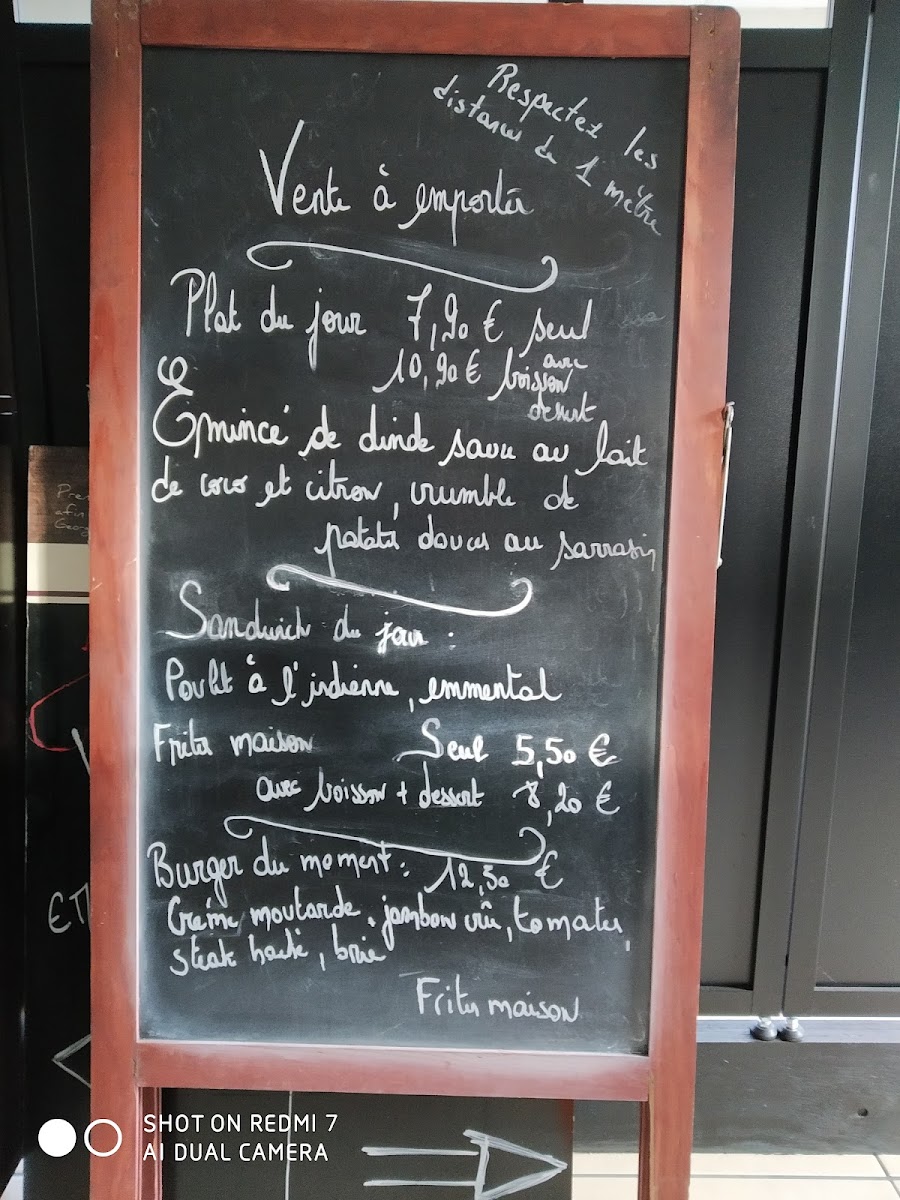 Respectez les
distances de 1 mètre
Vente à emporter
Plat du jour 7,90 € seul
10,90 € boisson avec
dessert
Émincé de dinde sauce au lait
de coco et citron, crumble de
patates douces au sarrasin
Sandwich du jour :
Poulet à l'indienne, emmental
Frites maison Seul 5,50 €
avec boisson + dessert 8,20 €
Burger du moment : 12,50 €
Crème moutarde, jambon cru, tomates,
steak haché, brie
Frites maison
Pre
afin
Geor
ET
SHOT ON REDMI 7
AI DUAL CAMERA